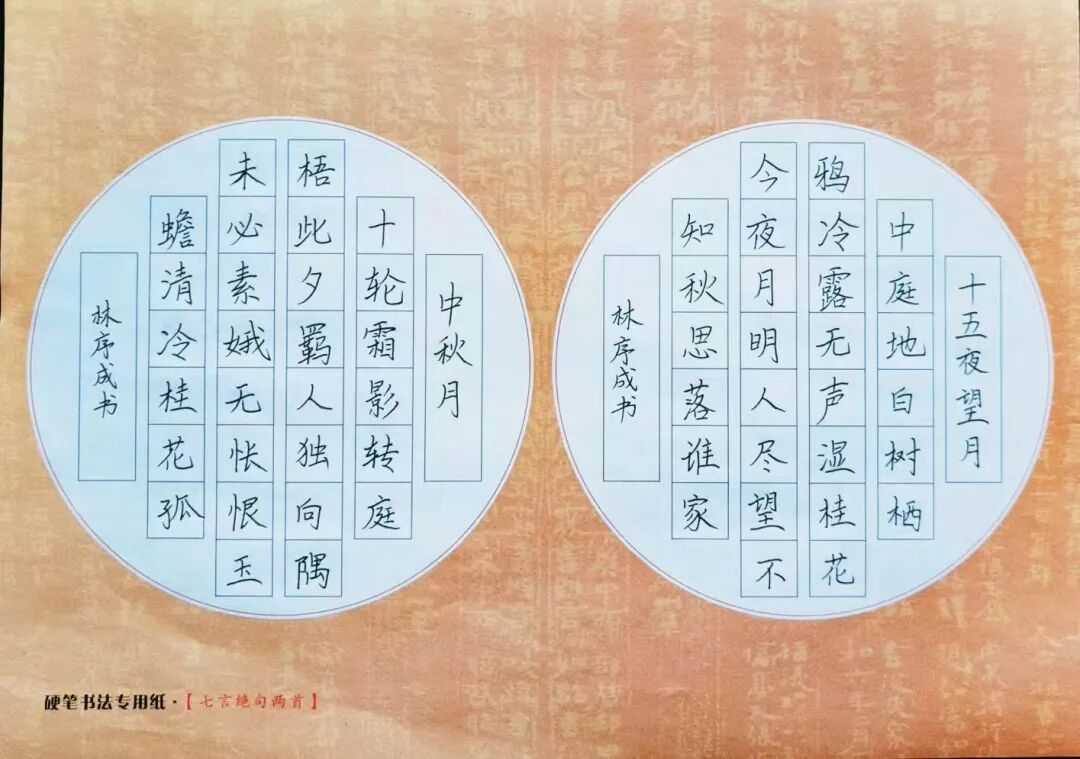 十五夜望月
中庭地白树栖
鸦冷露无声湿桂花
今夜月明人尽望不
知秋思落谁家
林序成书
中秋月
十轮霜影转庭
梧此夕羁人独向隅
未必素娥无怅恨玉
蟾清冷桂花孤
林序成书
硬笔书法专用纸·【七言绝句两首】